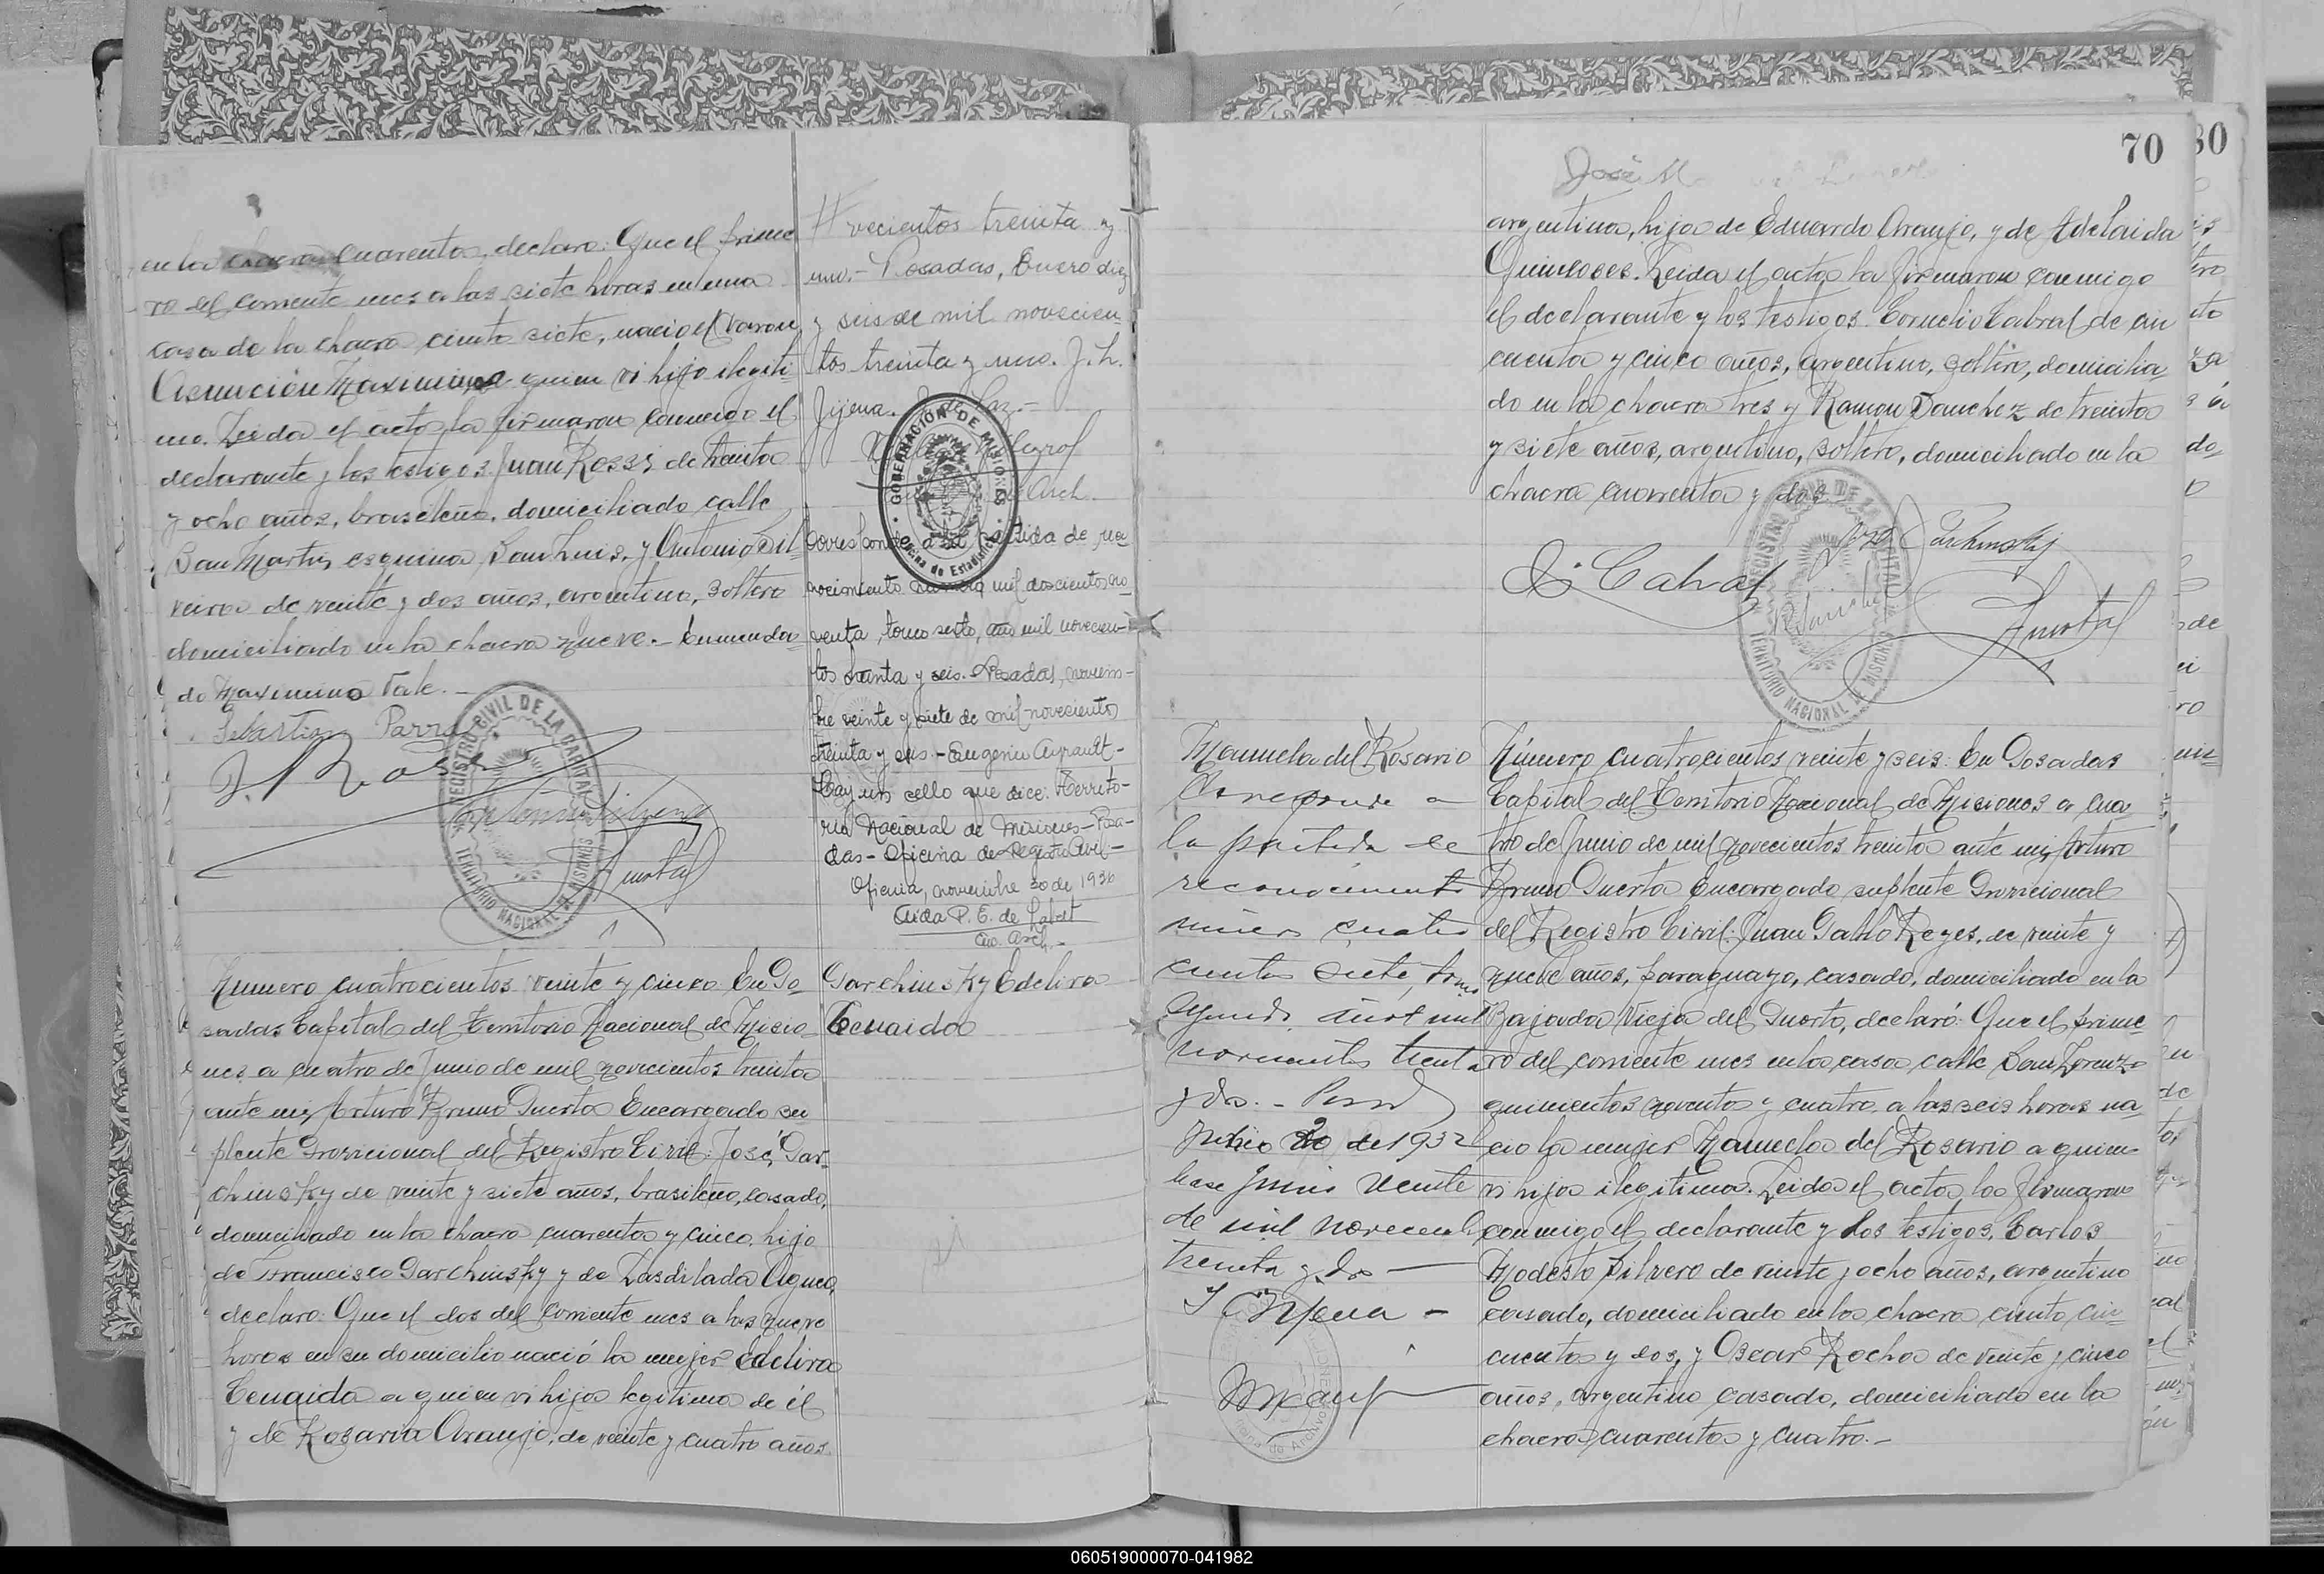 en la chacra cuarenta, declaro: Que el prime
ro del corriente mes a las siete horas en una
casa de la chacra ciento siete, nacio el varon
Asunción Maximino a quien vi hijo ilegiti-
mo. Leida el acta la firmaron conmigo el
declarante y los testigos Juan Rossi de treinta
y ocho años, brasileño, domiciliado calle
San Martin esquina San Luis, y Antonio Sil-
veira de veinte y dos años, argentino, soltero
domiciliado en la chacra nueve.- Enmenda
do Maximino Vale.-
Sebastian Parra
J. Rossi
Antonio Silveira
Puerta
REGISTRO CIVIL DE LA CAPITAL
TERRITORIO NACIONAL DE MISIONES
vecientos treinta y
uno.- Posadas, Enero diez
y seis de mil novecien-
tos treinta y uno. J. L.
Jijena. J. de Paz.-
Arch.
GOBERNACIÓN DE MISIONES
Oficina de Estadística
Corresponde a la partida de reco-
nocimiento número mil doscientos no-
venta, tomo sexto, año mil novecien-
tos treinta y seis.- Posadas, noviem-
bre veinte y siete de mil novecientos
treinta y seis.- Eugenio Ayrault-
Hay un sello que dice: Territo-
rio Nacional de Misiones-Posa-
das- Oficina de Registro Civil-
Oficina, noviembre 30 de 1936
Aida P. E. de
Arch.-
Numero cuatrocientos veinte y cinco En Po-
sadas Capital del Territorio Nacional de Misio
nes a cuatro de Junio de mil novecientos treinta
ante mi, Arturo Bruno Puerta Encargado su
plente Provicional del Registro Civil: José Gar-
chinsky de veinte y siete años, brasileño, casado,
domiciliado en la chacra cuarenta y cinco, hijo
de Francisco Garchinsky y de Lasdilada
declaro: Que el dos del corriente mes a las nueve
horas en su domicilio nació la mujer Edelira
Cenaida a quien vi hija legitima de él
y de Rosaria Araujo, de veinte y cuatro años
Garchinsky Edelira
Cenaida
70
80
José
argentina, hija de Eduardo Araujo, y de Adelaida
Quiñones. Leida el acta la firmaron conmigo
el declarante y los testigos Cornelio Cabral de cin
cuenta y cinco años, argentino, soltero, domicilia-
do en la chacra tres y Ramon Sanchez de treinta
y siete años, argentino, soltero, domiciliado en la
chacra cuarenta y dos.-
José Garchinsky
C. Cabral
Puerta
REGISTRO CIVIL DE LA CAPITAL
TERRITORIO NACIONAL DE MISIONES
Manuela del Rosario
Corresponde a
la partida de
reconocimiento
número cuatro
cientos siete, tomo
segundo, año mil
novecientos treinta
y dos.- Posadas
Junio 20 de 1932
Vale Junio veinte
de mil novecientos
treinta y dos
J Jijena -
Número cuatrocientos veinte y seis: En Posadas
Capital del Territorio Nacional de Misiones a cua
tro de Junio de mil novecientos treinta ante mi, Arturo
Bruno Puerta Encargado suplente Provicional
del Registro Civil: Juan Pablo Reyes, de veinte y
nueve años, paraguayo, casado, domiciliado en la
Bajada Vieja del Puerto, declaró: Que el prime-
ro del corriente mes en la casa calle San Lorenzo
quinientos noventa y cuatro, a las seis horas na
cio la mujer Manuela del Rosario a quien
vi hija ilegitima. Leida el acta la firmaron
conmigo el declarante y los testigos, Carlos
Modesto Silvero de veinte y ocho años, argentino
casado, domiciliado en la chacra ciento cin-
cuenta y dos, y Oscar Rocha de veinte y cinco
años, argentino casado, domiciliado en la
chacra cuarenta y cuatro.-
060519000070-041982